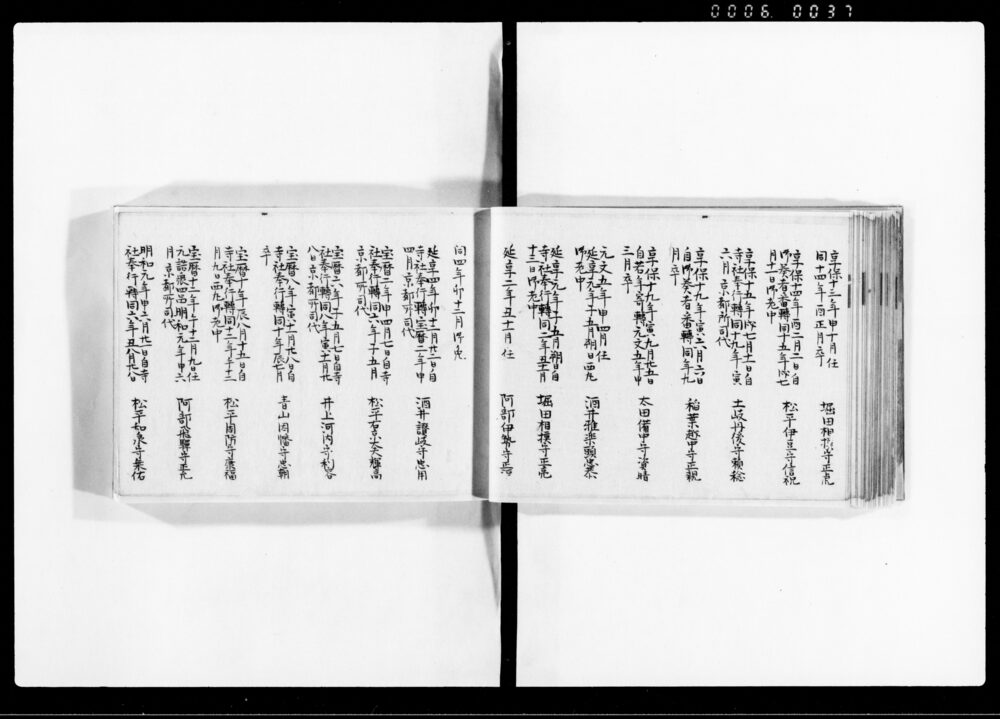 0006 0037
享保十三年申十月任
同十四年酉正月卒
堀田相模守正虎
享保十四年酉二月二日自
御奏者番轉同十五年戌七
月十一日御老中
松平伊豆守信祝
享保十五年戌七月十一日自
寺社奉行轉同十九年寅
六月京都所司代
土岐丹後守頼稔
享保十九年寅六月六日
自御奏者番轉同年九
月卒
稲葉越中守正親
享保十九年寅九月廿五日
自若年寄轉元文五年申
三月卒
太田備中守資晴
元文五年申四月任
延享元年子五月朔日西丸
御老中
酒井雅楽頭忠恭
延享元年子五月朔日自
寺社奉行轉同二年丑十一月
十三日御老中
堀田相模守正亮
延享二年丑十一月任
阿部伊勢守正
同四年卯十二月御免
延享四年卯十二月廿三日自
寺社奉行轉宝暦二年申
四月京都所司代
酒井讃岐守忠用
宝暦二年申四月七日自寺
社奉行轉同六年子五月
京都所司代
松平右京大夫輝高
宝暦六年子五月七日自寺
社奉行轉同八年寅十一月廿
八日京都所司代
井上河内守利容
宝暦八年寅十一月廿八日自
寺社奉行轉同十年辰七月
卒
青山因幡守忠朝
宝暦十年辰八月十五日自
寺社奉行轉同十二年午十二
月九日西丸御老中
松平周防守康福
宝暦十二年午十二月九日任
元詰衆四品明和元年申六
月京都所司代
阿部飛騨守正允
明和元年申六月廿一日自寺
社奉行轉同六年丑八月十八
松平和泉守乗佑